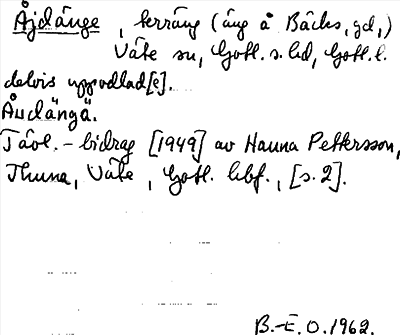 Åjdänge, terräng (äng å Bäcks, gd,)
Väte sn, Gotl. s. hd, Gotl. l.
delvis uppodlad[e].
Åudängä.
Tävl.-bidrag [1949] av Hanna Pettersson,
Thuna, Väte, Gotl. hbf., [s. 2].
B.-E. O. 1962.